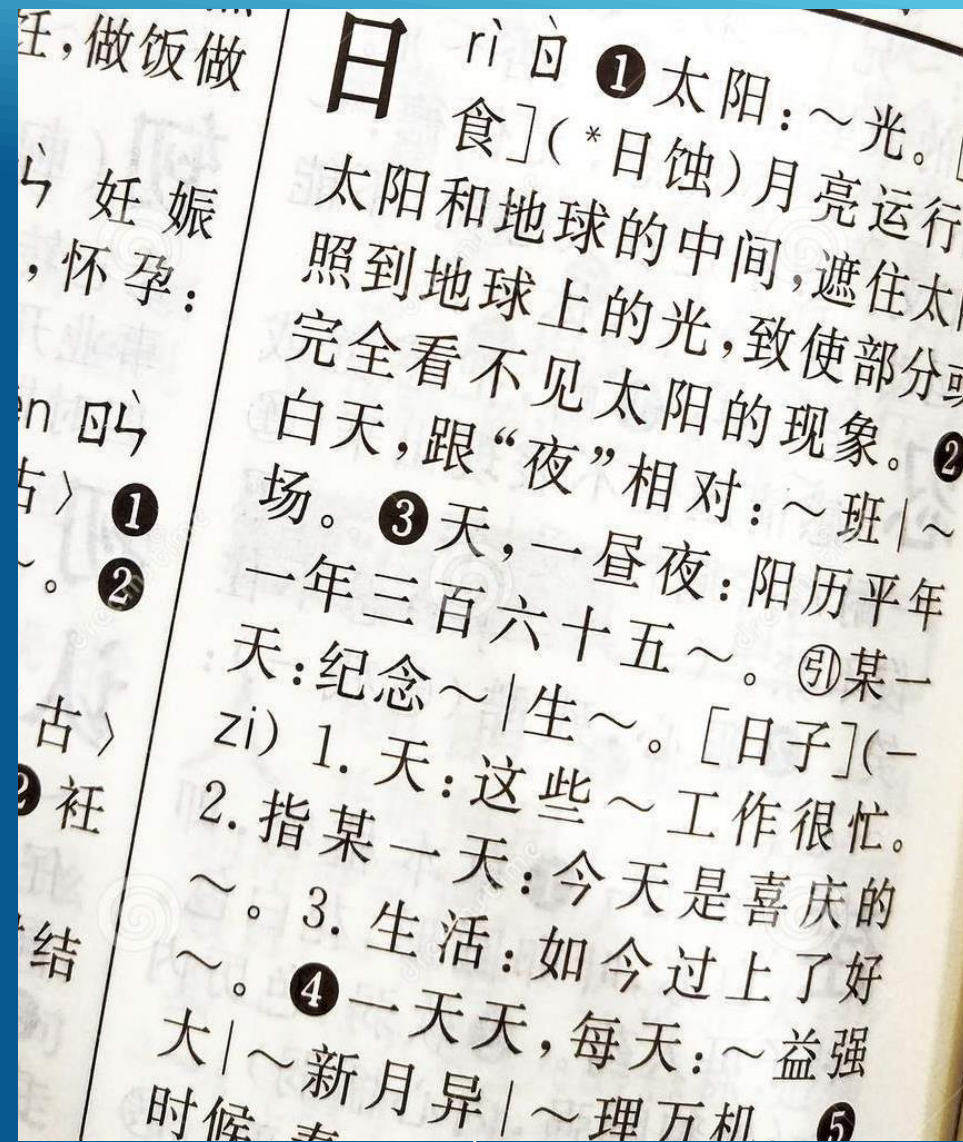 饪,做饭做
妊娠
,怀孕:
en ㄖㄣˋ
古〉❶
~。❷
古〉
❷衽
结
日 rì ㄖˋ ❶太阳:~光。[
食](*日蚀)月亮运行
太阳和地球的中间,遮住太阳
照到地球上的光,致使部分或
完全看不见太阳的现象。❷
白天,跟“夜”相对:~班|~
场。❸天,一昼夜:阳历平年
一年三百六十五~。㊂引某一
天:纪念~|生~。[日子](—
zi) 1. 天:这些~工作很忙。
2. 指某一天:今天是喜庆的
~。3. 生活:如今过上了好
~。❹一天天,每天:~益强
大|~新月异|~理万机 ❺
时候